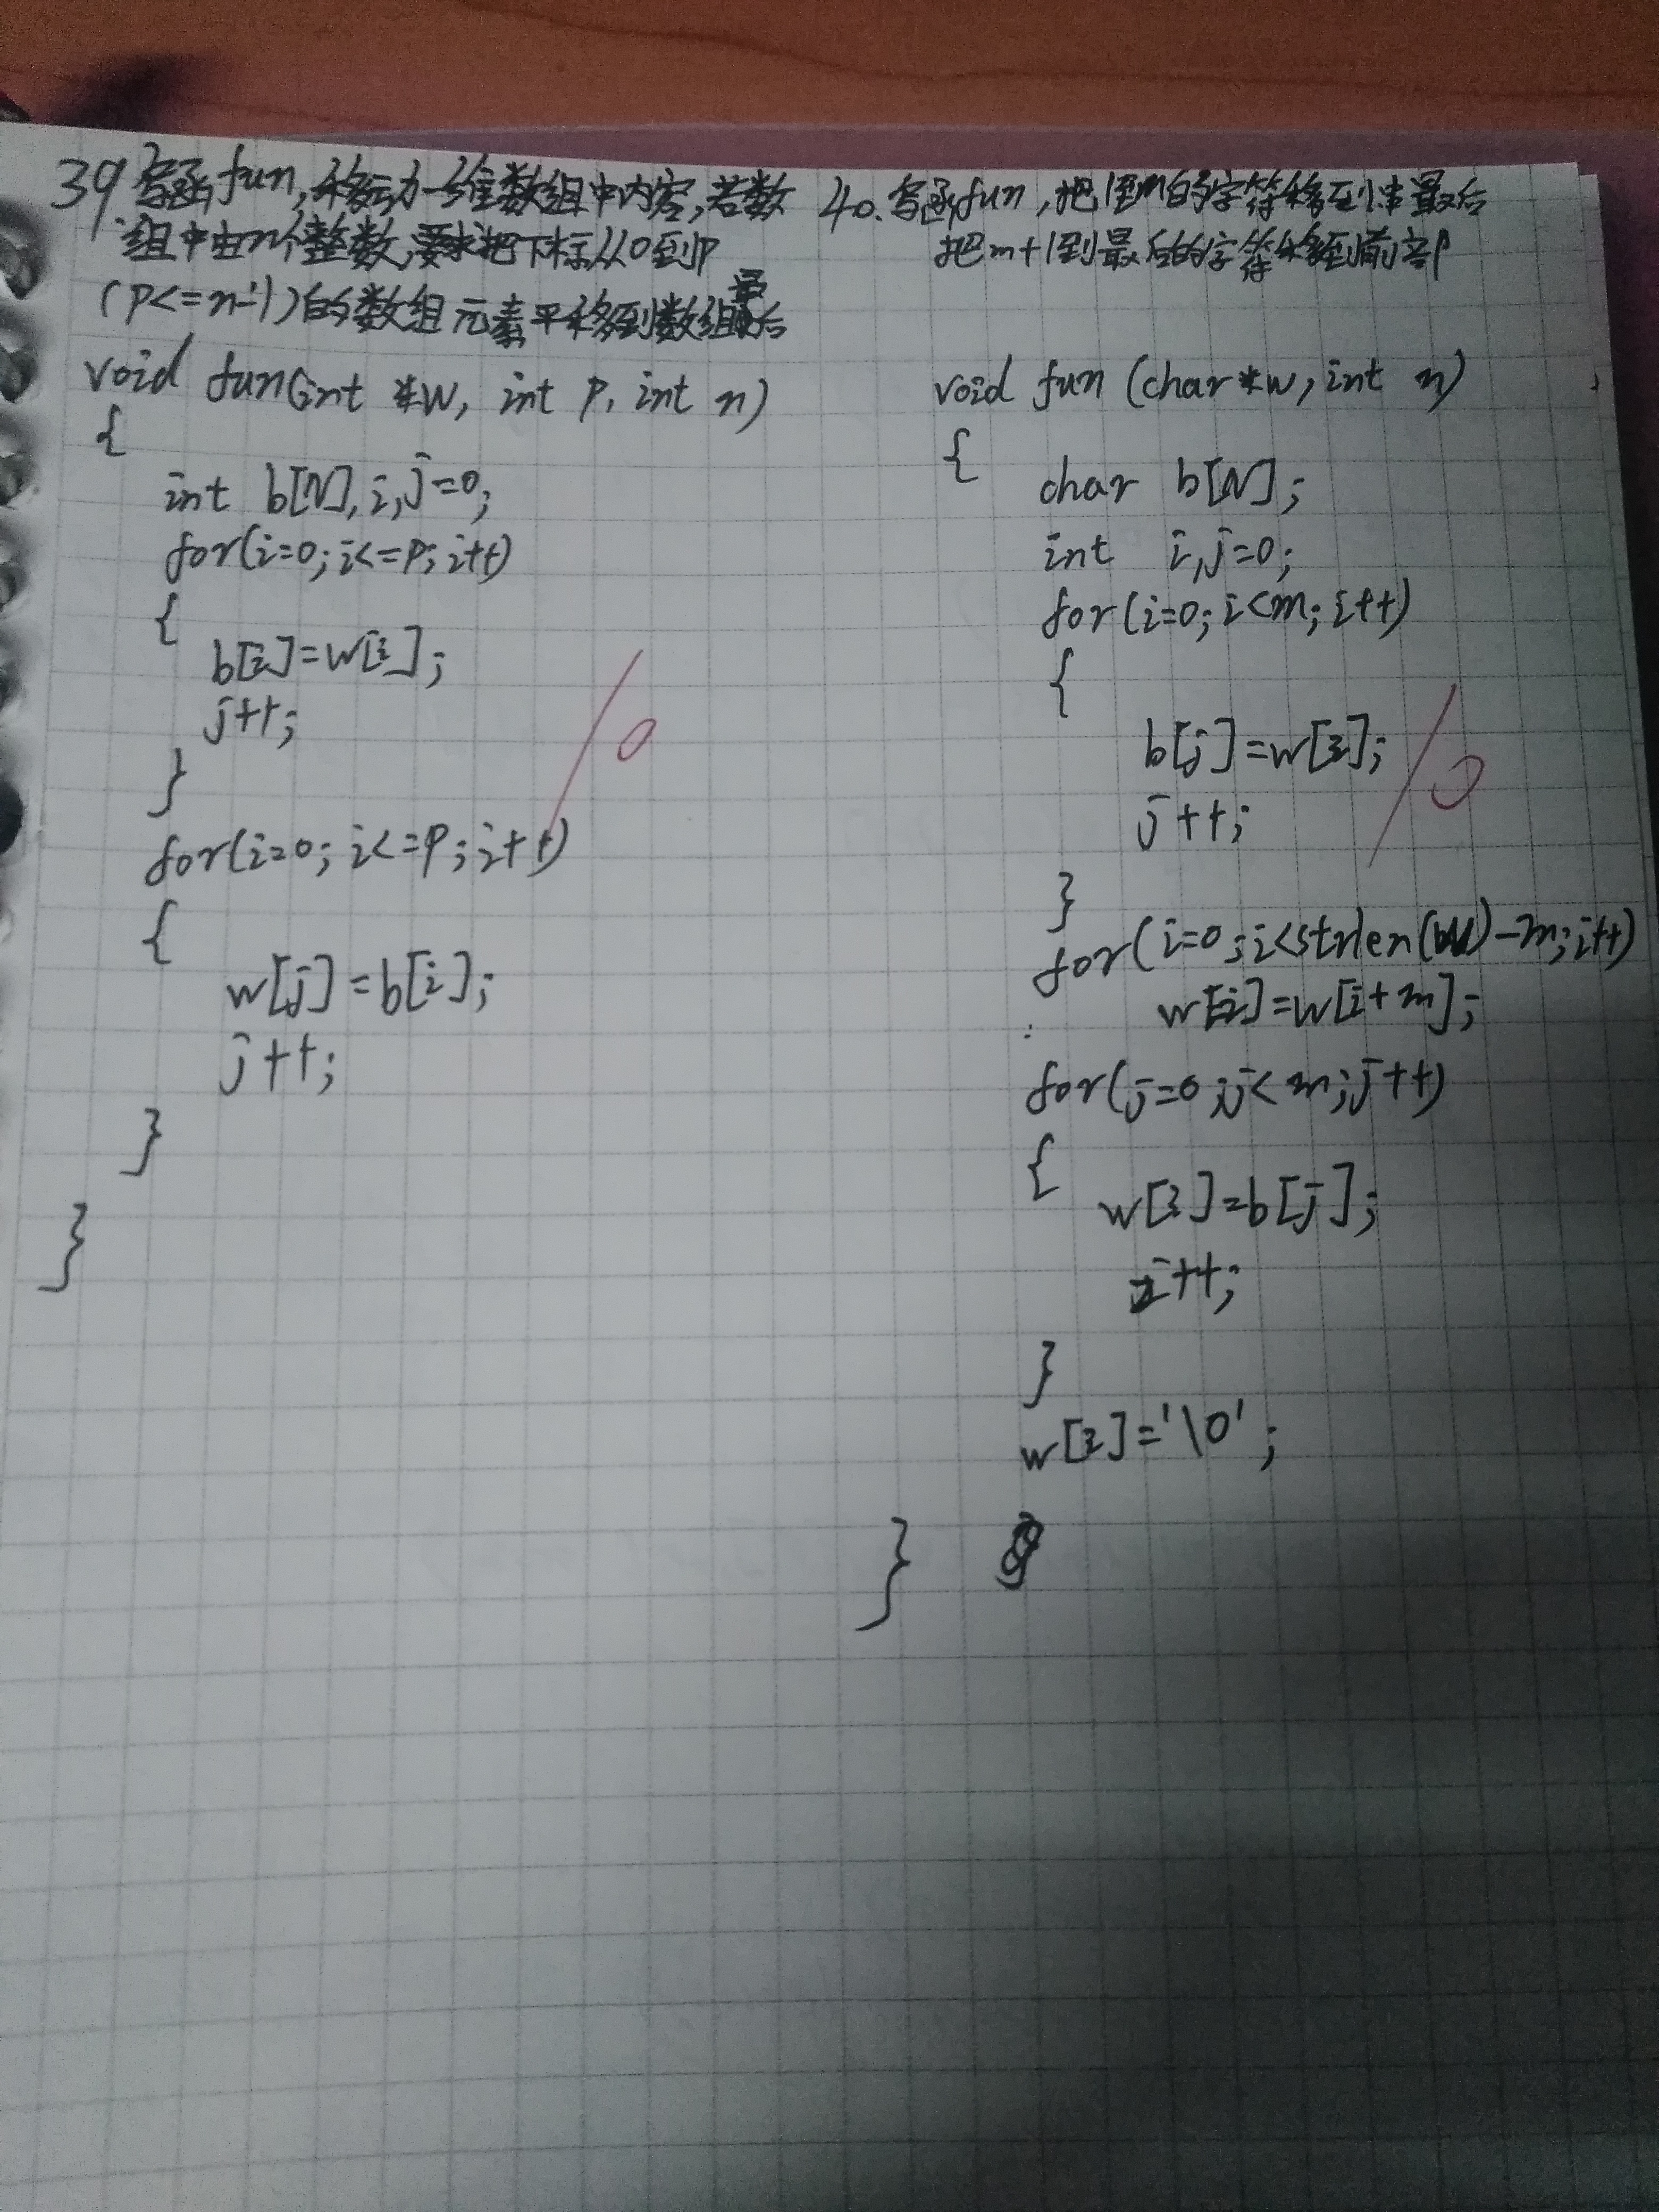 39 写函fun,移动一维数组中内容,若数
组中由n个整数,要求把下标从0到p
(p<=n-1)的数组元素平移到数组最后
void fun(int *w, int p, int n)
{
int b[N],i,j=0;
for(i=0;i<=p;i++)
{
b[i]=w[i];
j++;
}
for(i=0;i<=p;i++)
{
w[j]=b[i];
j++;
}
}
10
40.写函fun,把1到m的字符移到串最后
把m+1到最后的字符移到前部
void fun (char*w,int n)
{
char b[N];
int i,j=0;
for(i=0;i<m;i++)
{
b[j]=w[i];
j++;
}
for(i=0;i<strlen(w)-m;i++)
w[i]=w[i+m];
for(j=0;j<m;j++)
{
w[i]=b[j];
i++;
}
w[i]='\0';
}
10